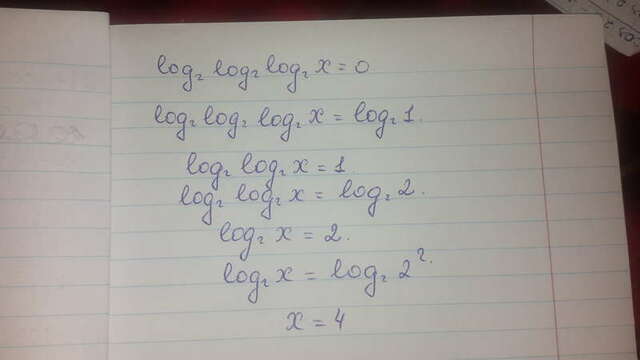 log₂ log₂ log₂ x = 0
log₂ log₂ log₂ x = log₂ 1.
log₂ log₂ x = 1
log₂ log₂ x = log₂ 2.
log₂ x = 2.
log₂ x = log₂ 2².
x = 4